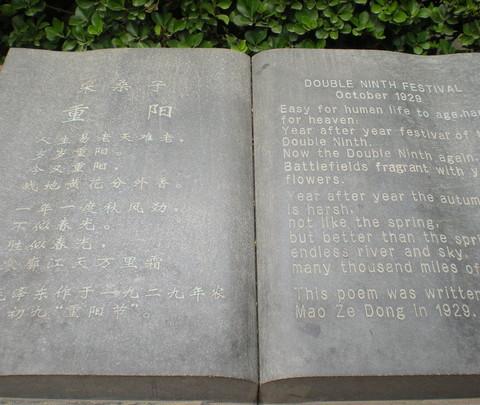 采桑子
重 阳
人生易老天难老，
岁岁重阳。
今又重阳，
战地黄花分外香。
一年一度秋风劲，
不似春光。
胜似春光，
廓江天万里霜
泽东作于一九二九年农
初九“重阳节”。
DOUBLE NINTH FESTIVAL
October 1929
Easy for human life to age,
for heaven.
Year after year festival of
Double Ninth.
Now the Double Ninth again.
Battlefields fragrant with
flowers.
Year after year the autumn
is harsh,
not like the spring,
but better than the
endless river and sky,
many thousand miles of
This poem was written
Mao Ze Dong in 1929.